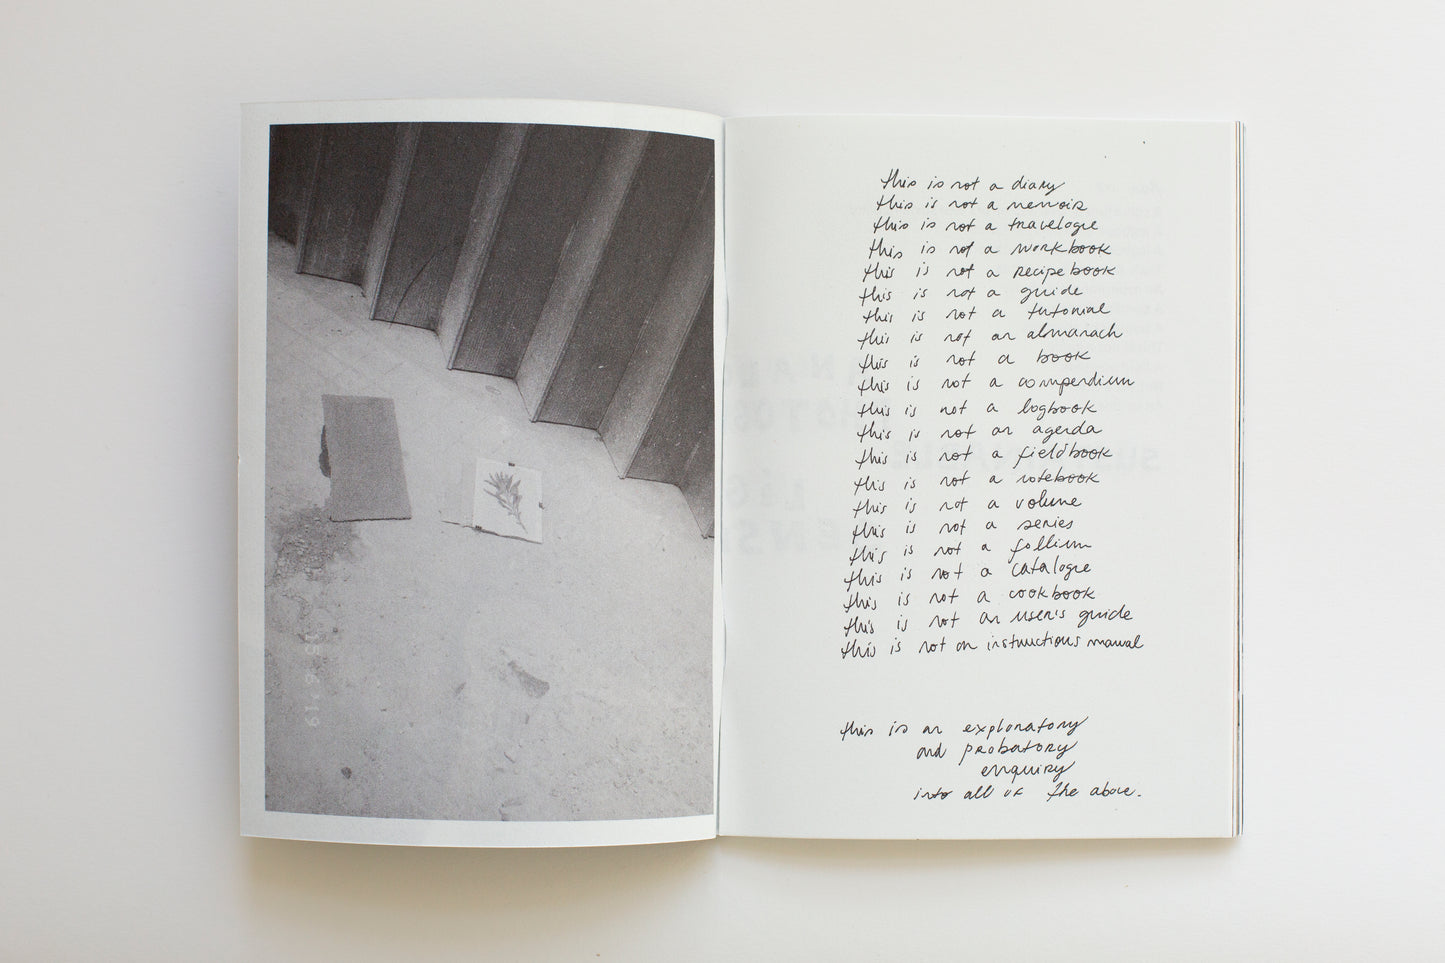 15 6 '19
this is not a diary
this is not a memoir
this is not a travelogue
this is not a workbook
this is not a recipe book
this is not a guide
this is not a tutorial
this is not an almanach
this is not a book
this is not a compendium
this is not a logbook
this is not an agenda
this is not a fieldbook
this is not a notebook
this is not a volume
this is not a series
this is not a follium
this is not a catalogue
this is not a cookbook
this is not an user's guide
this is not an instructions manual
this is an exploratory
and probatory
enquiry
into all of the above.